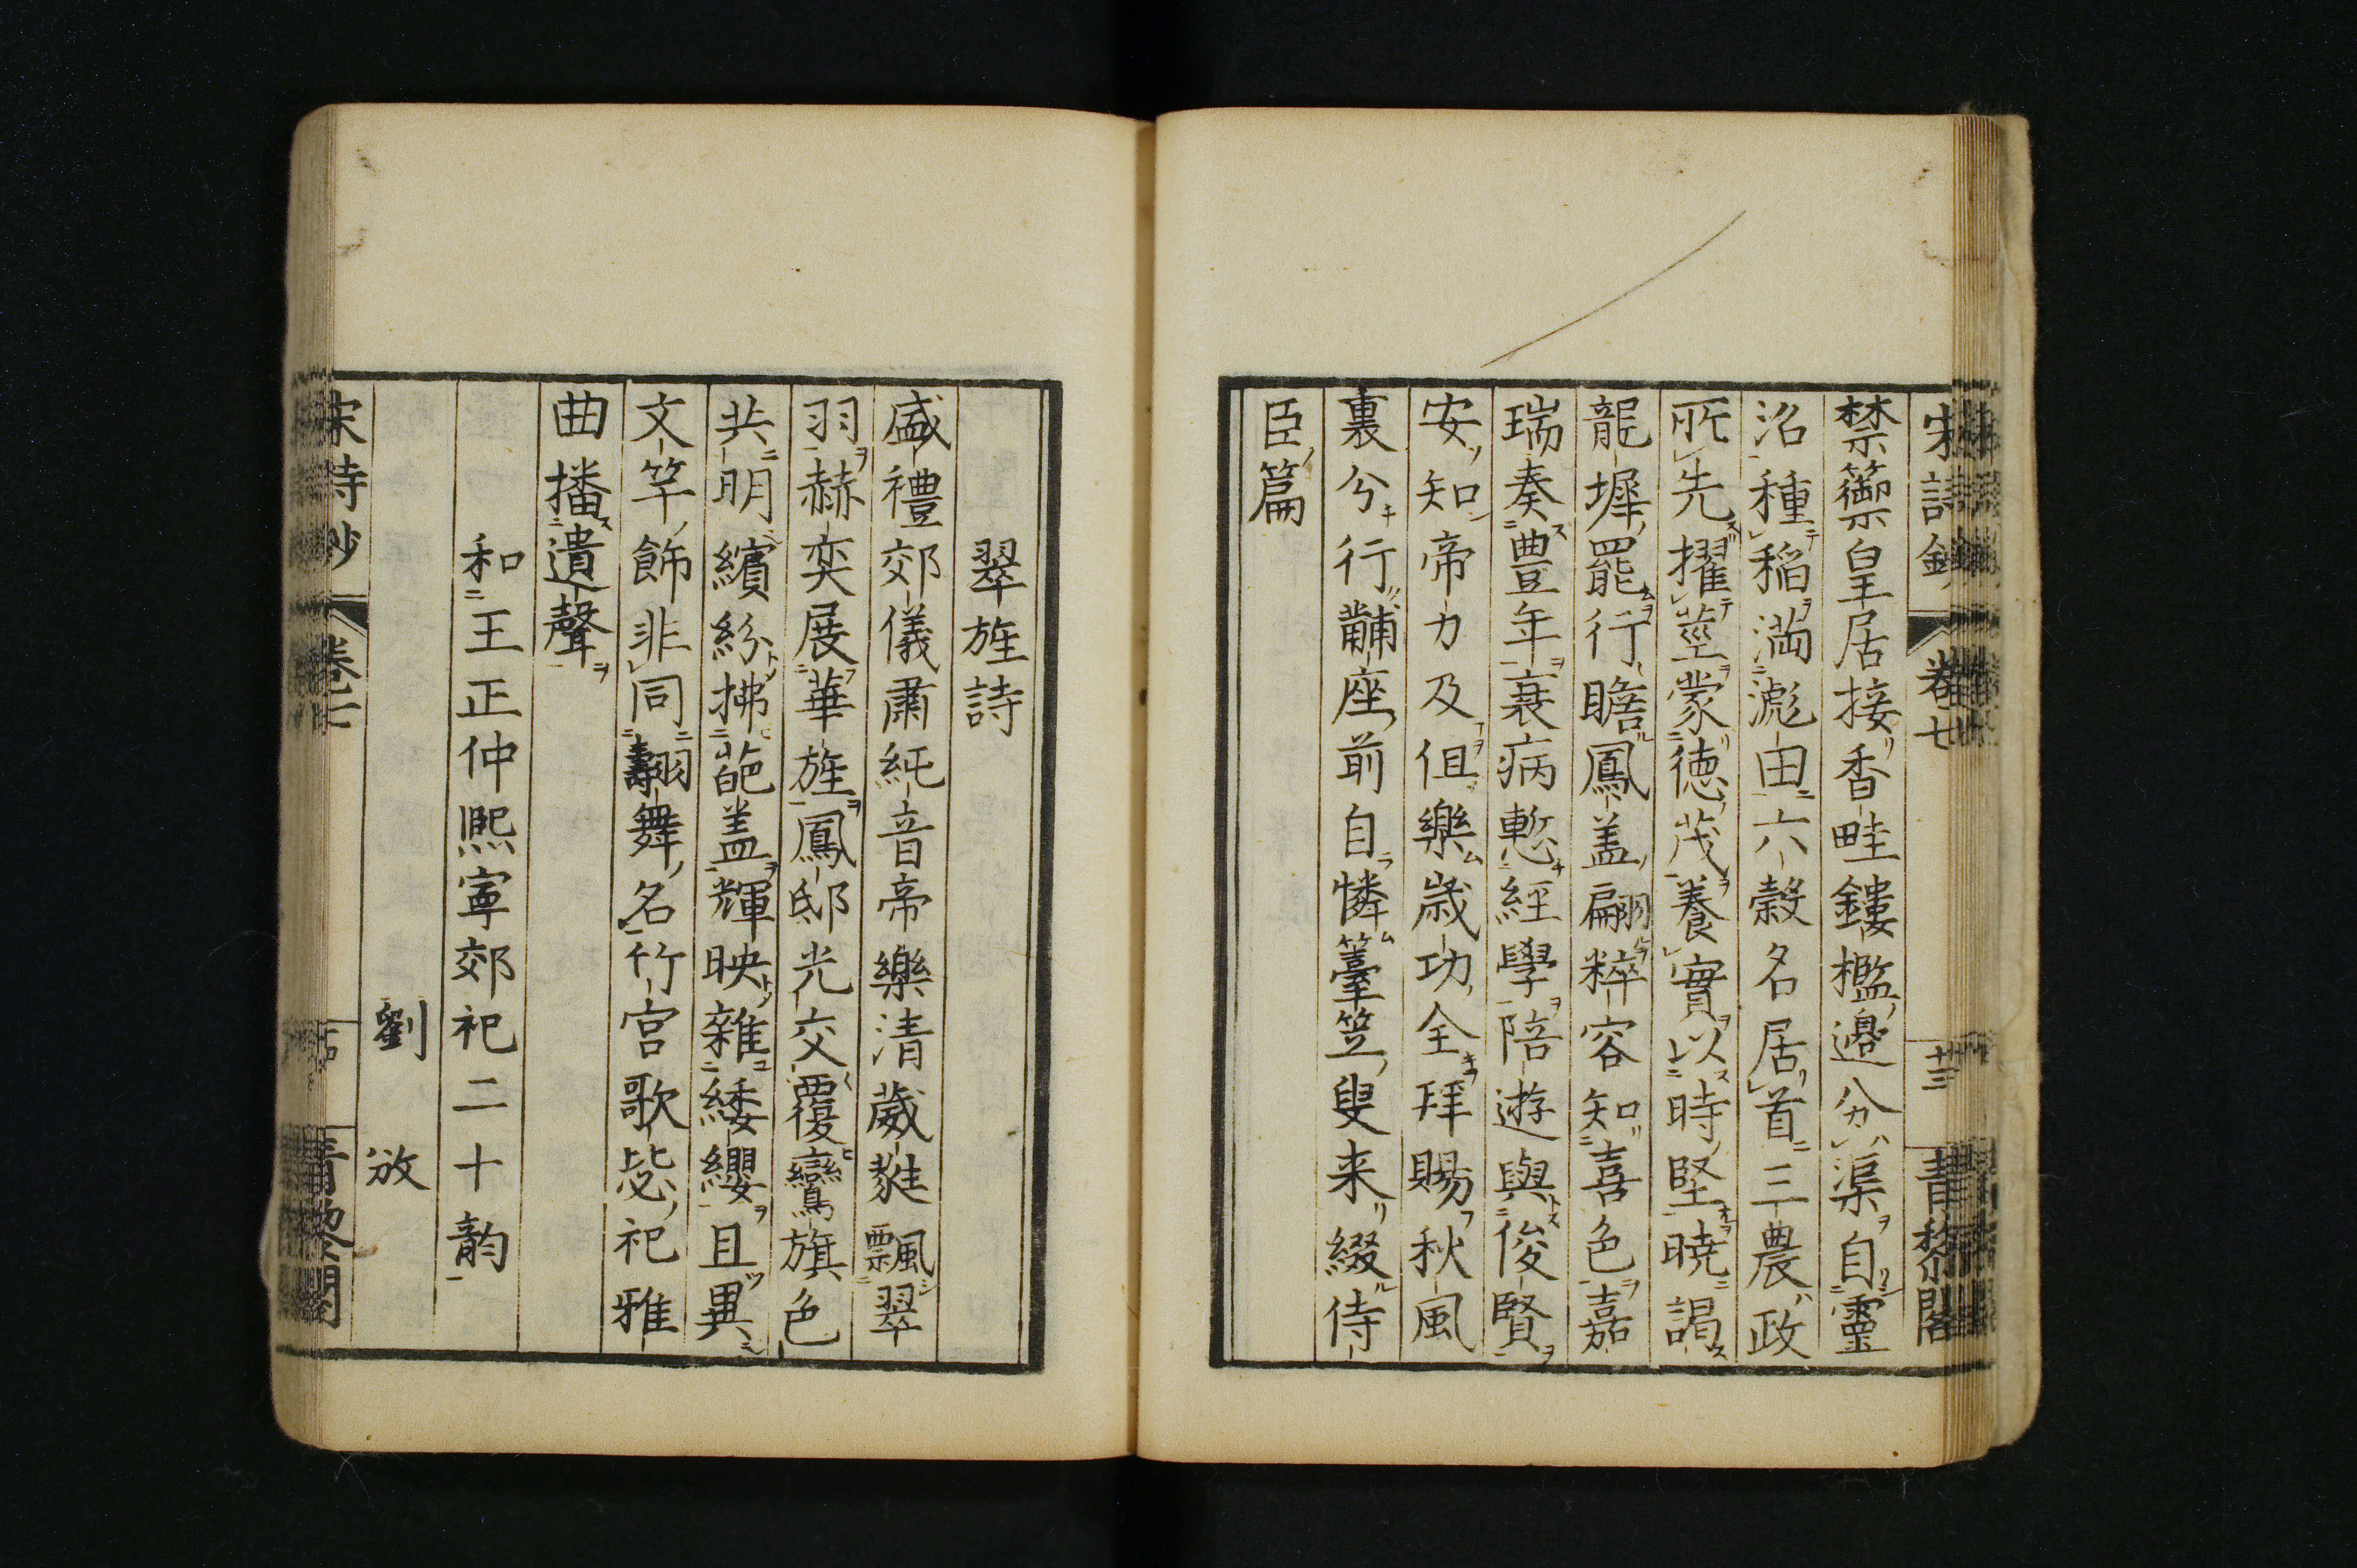 宋詩鈔 卷七 十三 青藜閣
禁籞皇居接香畦鏤檻邉分渠自靈
沼種稲満滮田六穀名居首三農政
所先擢莖蒙徳茂養實以時堅暁謁
龍墀罷行瞻鳳盖翩粹容知喜色嘉
瑞奏豊年衰病慙経學陪遊與俊賢
安知帝力及但樂歳功全拜賜秋風
裏兮行黼座前自憐臺笠叟来綴侍
臣篇
翠旌詩
盛禮郊儀肅純音帝樂清葳蕤飄翠
羽赫奕展華旌鳳邸光交覆鸞旗色
共明繽紛拂葩盖輝映雜緌纓且異
文竿飾非同翿舞名竹宮歌毖祀雅
曲播遺聲
和王正仲熙寧郊祀二十韵
劉 攽
宋詩鈔 卷七 青藜閣